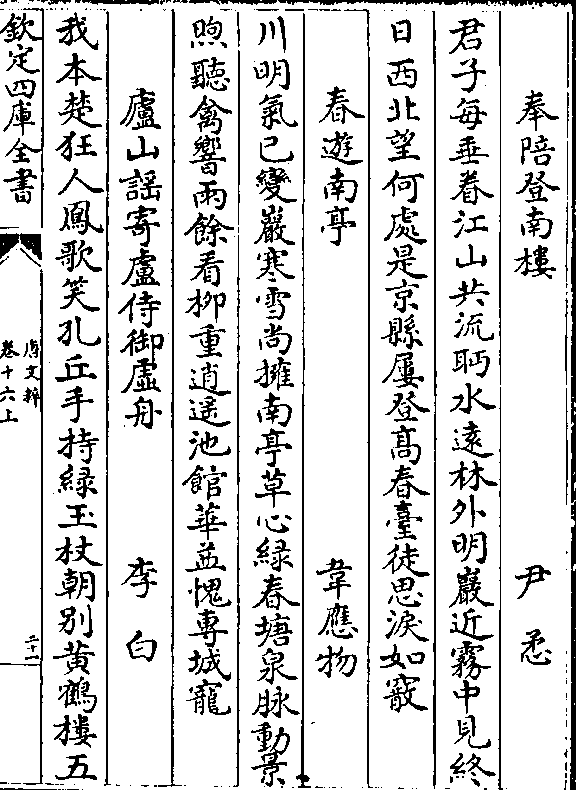 奉陪登南樓 尹懋
君子每垂眷江山共流眄水遠林外明巖近霧中見終
日西北望何處是京縣屢登髙春臺徒思淚如霰
春遊南亭 韋應物
川明氣已變巖寒雪尚擁南亭草心緑春塘泉脉動景
煦聽禽響雨餘看栁重逍遥池館華益愧専城寵
廬山謡寄盧侍御虛舟 李白
我本楚狂人鳳歌笑孔丘手持緑玉杖朝别黄鶴樓五
欽定四庫全書
唐文粹
卷十六上
二十一